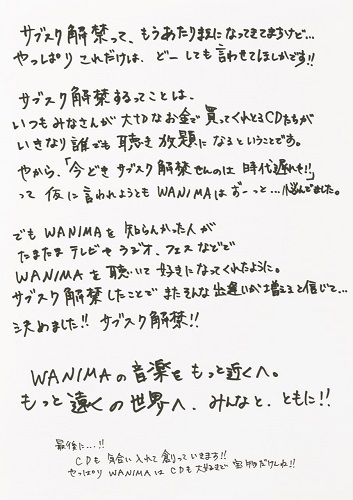 サブスク解禁って、もうあたりまえになってきてますけど…
やっぱり これだけは、どーしても言わせてほしかです!!
サブスク解禁するってことは、
いつもみなさんが 大切なお金で 買ってくれとるCDたちが
いきなり 誰でも 聴き放題に なるということです。
やから、「今どき サブスク解禁せんのは 時代遅れぞ!!」
って 仮に言われようとも WANIMAは ずーっと…悩んでました。
でも WANIMAを 知らんかった人が
たまたま テレビやラジオ、フェスなどで
WANIMAを 聴いて 好きになってくれたように。
サブスク解禁したことで またそんな 出逢いが 増えると信じて…
決めました!! サブスク解禁!!
WANIMAの音楽を もっと近くへ。
もっと 遠くの世界へ、みんなと、ともに!!
最後に…!!
CDも 気合い入れて 創っていきます!!
やっぱり WANIMAは CDも大好きで 宝物だけんね!!